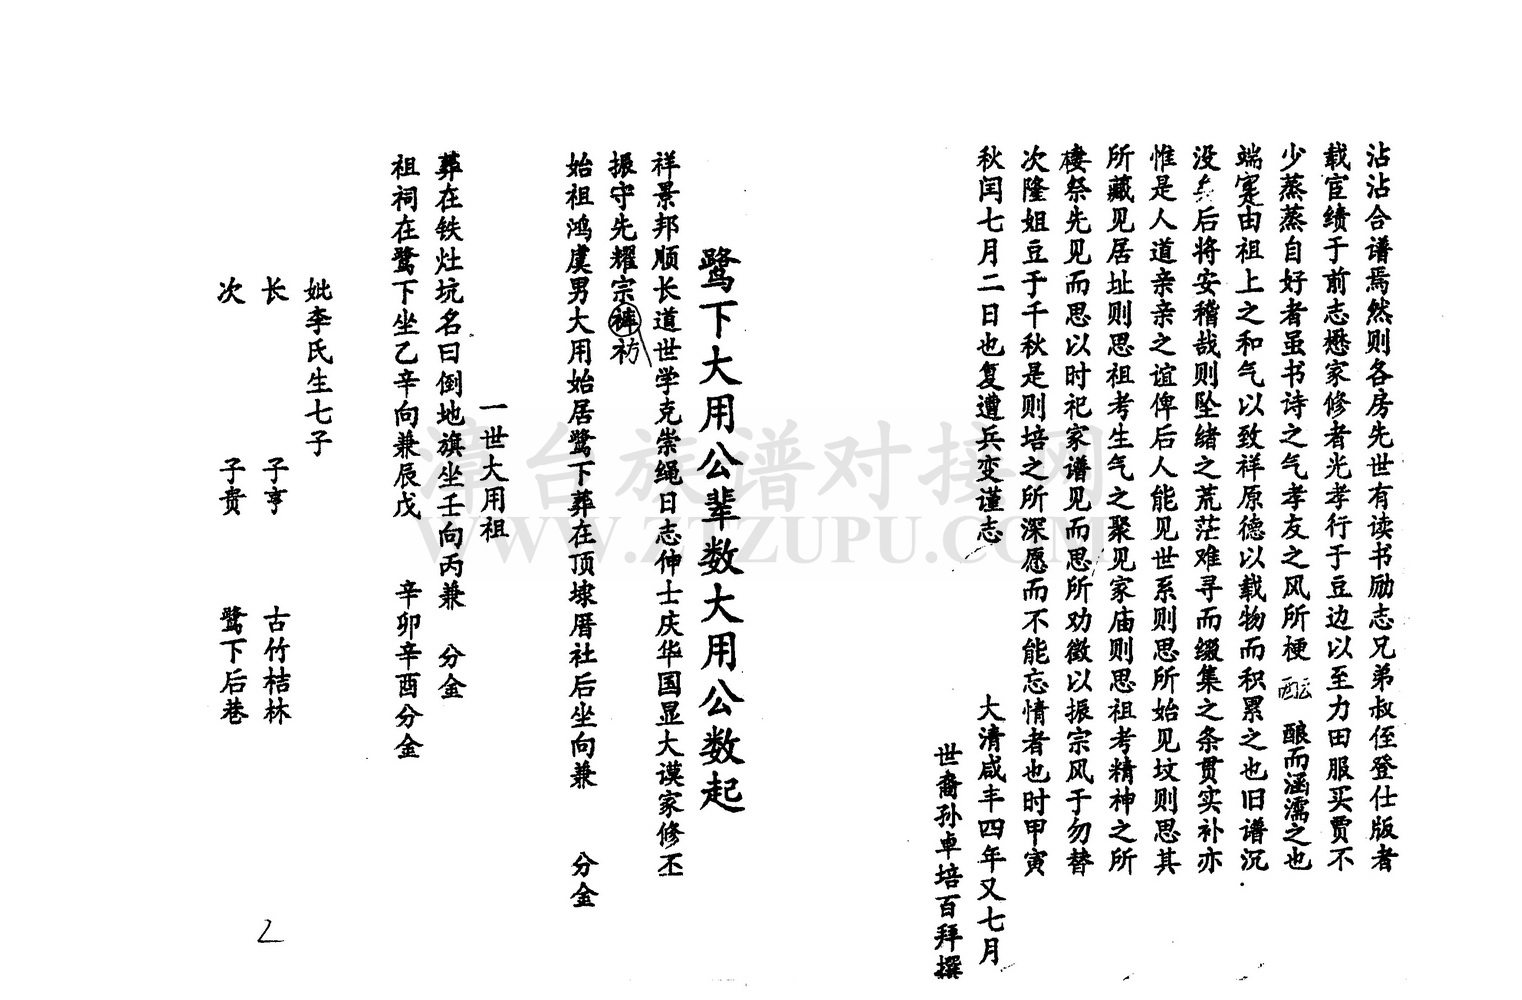 沾沾合谱焉然则各房先世有读书励志兄弟叔侄登仕版者
载宦绩于前志懋家修者光孝行于豆边以至力田服买贾不
少蒸蒸自好者虽书诗之气孝友之风所梗酝酿而涵濡之也
端寔由祖上之和气以致祥原德以载物而积累之也旧谱沉
没矣后将安稽哉则坠绪之荒茫难寻而缀集之条贯实补亦
惟是人道亲亲之谊俾后人能见世系则思所始见坟则思其
所藏见居址则思祖考生气之聚见家庙则思祖考精神之所
棲祭先见而思以时祀家谱见而思所劝徵以振宗风于勿替
次隆姐豆于千秋是则培之所深愿而不能忘情者也时甲寅
秋闰七月二日也复遭兵变谨志
大清咸丰四年又七月
世裔孙卓培百拜撰
鹭下大用公辈数大用公数起
祥景邦顺长道世学克崇绳日志伸士庆华国显大谟家修丕
振守先耀宗裤祊
始祖鸿虞男大用始居鹭下葬在顶埭厝社后坐向兼 分金
一世大用祖
葬在铁灶坑名曰倒地旗坐壬向丙兼 分金
祖祠在鹭下坐乙辛向兼辰戌 辛卯辛酉分金
妣李氏生七子
长 子亨 古竹桔林
次 子贵 鹭下后巷
漳台族谱对接网
WWW.ZTZUPU.COM